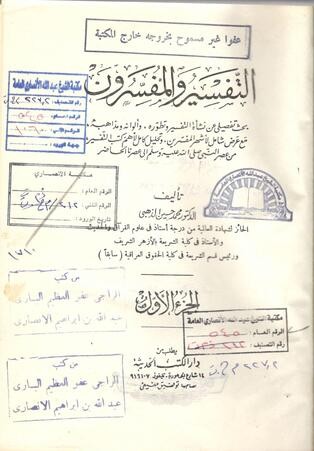 عفوا غير مسموح بخروجه خارج المكتبة
مكتبة الشيخ عبد الله الأنصاري العامة
الرقم العام:
رقم التصنيف:
التفسير والمفسرون
بحث تفصيلى عن نشأة التفسير وتطوره، وألوانه ومذاهبه،
مع عرض شامل لأشهر المفسرين، وتحليل كامل لأهم كتب التفسير
من عصر النبى صلى الله عليه وسلم إلى عصرنا الحاضر
مكتبة الانصاري
الرقم العام:
الرقم الثاني:
تاريخ الورود:
تأليف
الدكتور محمد حسين الذهبى
الحائز لشهادة العالمية من درجة أستاذ فى علوم القرآن والحديث
والأستاذ فى كلية الشريعة بالأزهر الشريف
ورئيس قسم الشريعة فى كلية الحقوق العراقية (سابقا)
١٧١٠
من كتب
الراجي عفو العظيم الباري
عبد الله بن ابراهيم الانصاري
الجزء الأول
مكتبة الشيخ عبد الله الأنصاري العامة
الرقم العام: ٥٤٥
رقم التصنيف:
يطلب من
دار الكتب الحديثة
١٤ شارع الجمهورية
من كتب
الراجي عفو العظيم الباري
عبد الله بن ابراهيم الانصاري